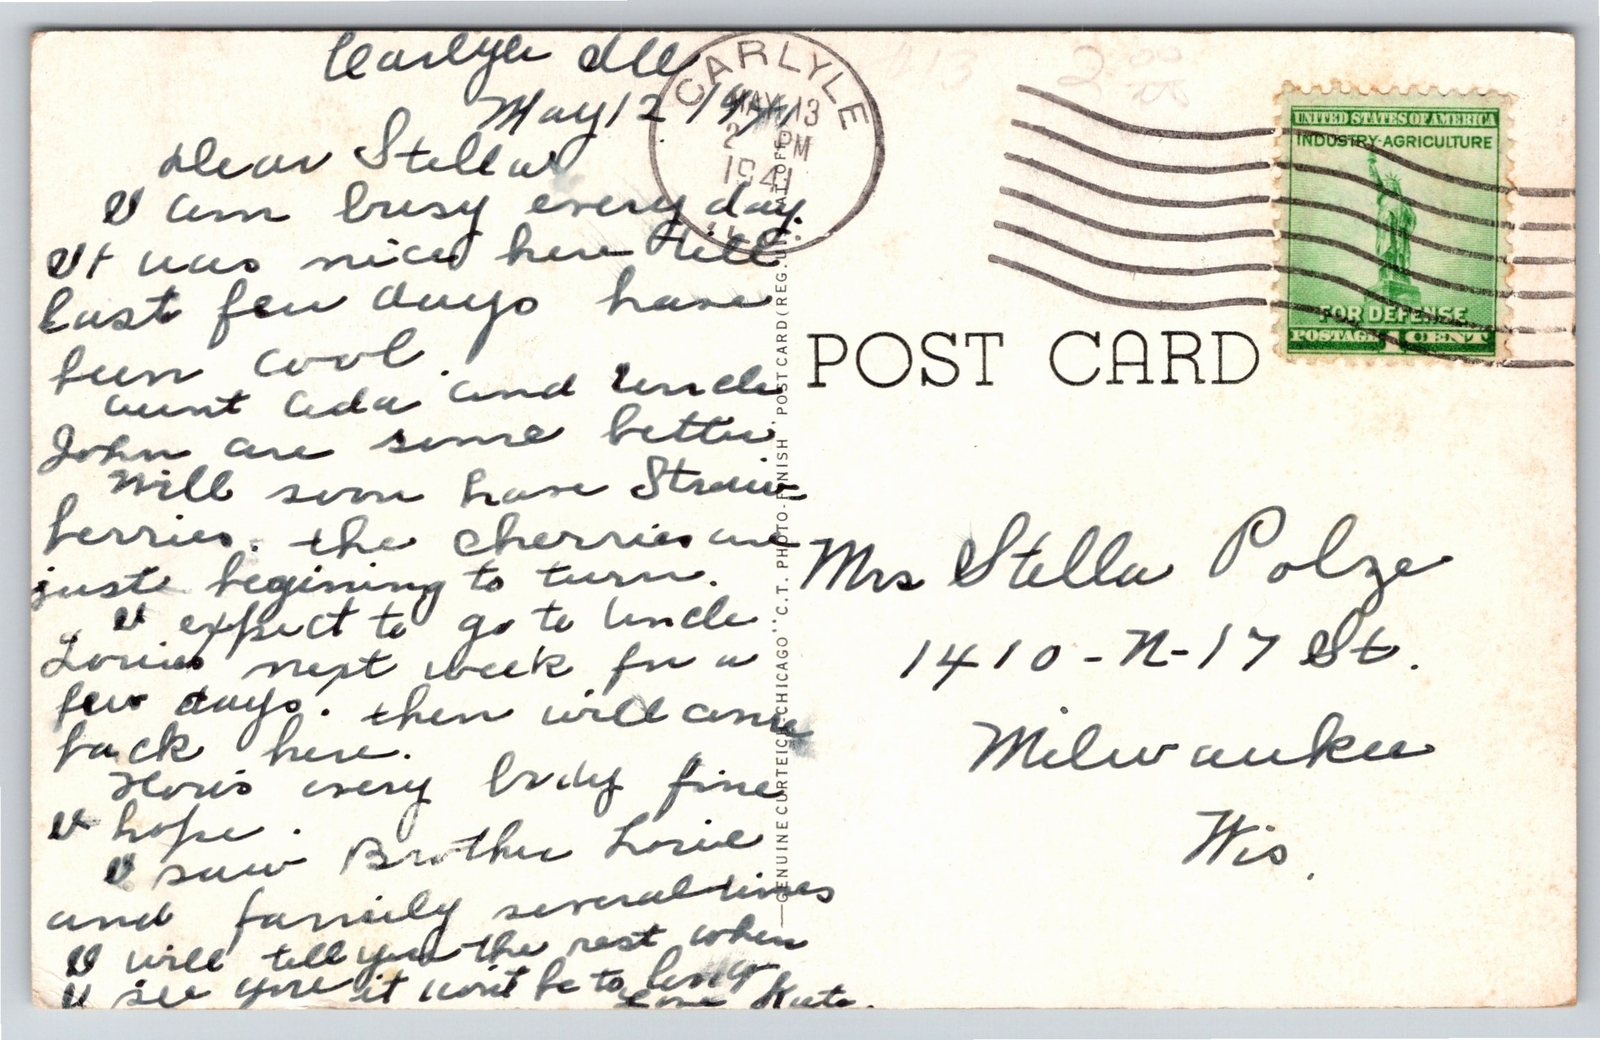 Carlyle Ill
May 12 1941
Dear Stella
I am busy every day.
It was nice here till
last few days have
been cool.
Aunt Ada and Uncle
John are some better
Will soon have Straw
berries. the cherries are
just begining to turn.
I expect to go to Uncle
Louies next week for a
few days. then will come
back here.
Hows every body fine
I hope.
I saw Brother Louie
and family several times
I will tell you the rest when
I see you it wont be to long
Love Kate.
CARLYLE
MAY 13
2 PM
1941
UNITED STATES OF AMERICA
INDUSTRY-AGRICULTURE
FOR DEFENSE
POSTAGE 1 CENT
POST CARD
GENUINE CURTEICH-CHICAGO "C.T. PHOTO-FINISH" POST CARD (REG. U.S. PAT. OFF.)
Mrs Stella Polze
1410-N-17 St.
Milwaukee
Wis.